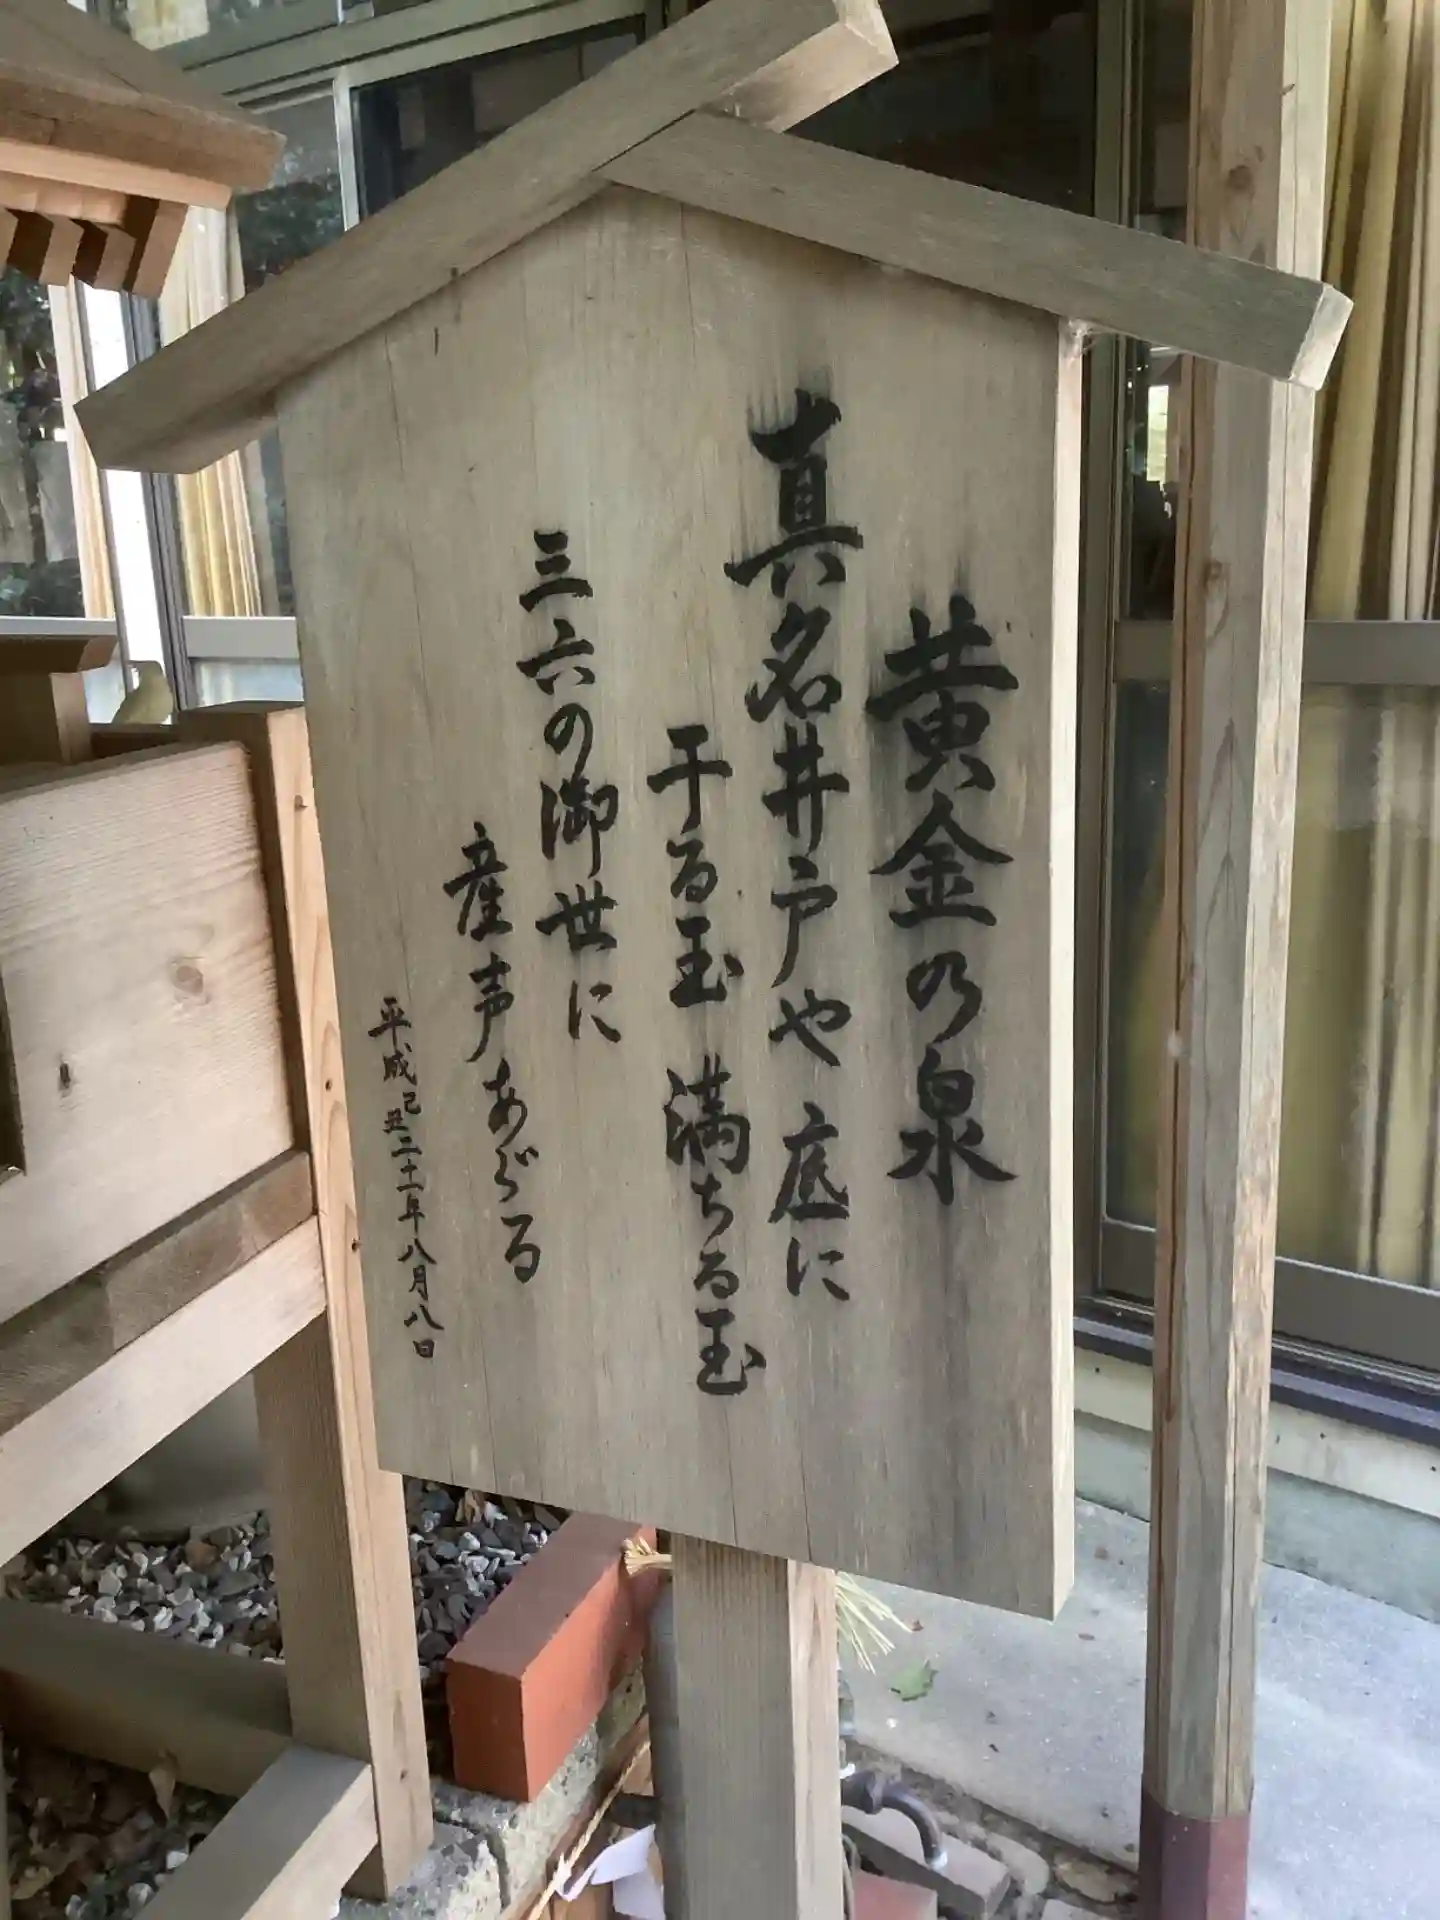 黄金の泉
真名井戸や底に
干る玉 満ちる玉
三六の御世に
産声あがる
平成己丑二十一年八月八日